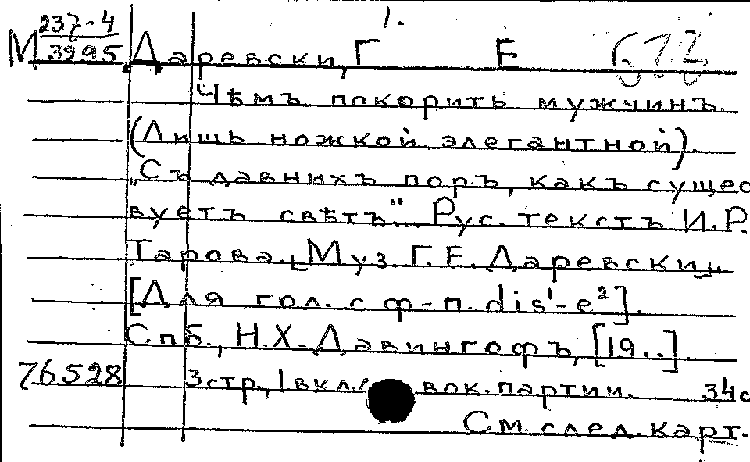 1.
М 237-4
3295 Даревски, Г Е
Чѣмъ покорить мужчинъ
(Лишь ножкой элегантной).
„Съ давнихъ поръ, какъ сущес
вуетъ свѣтъ". Рус. текстъ И.Р.
Тарова. Муз. Г.Е. Даревски.
[Для гол. с ф-п. dis¹-e²].
Спб., Н.Х. Давингофъ, [19..].
76528 3 стр., 1 вкл. вок. партии. 34с
См. след. карт.